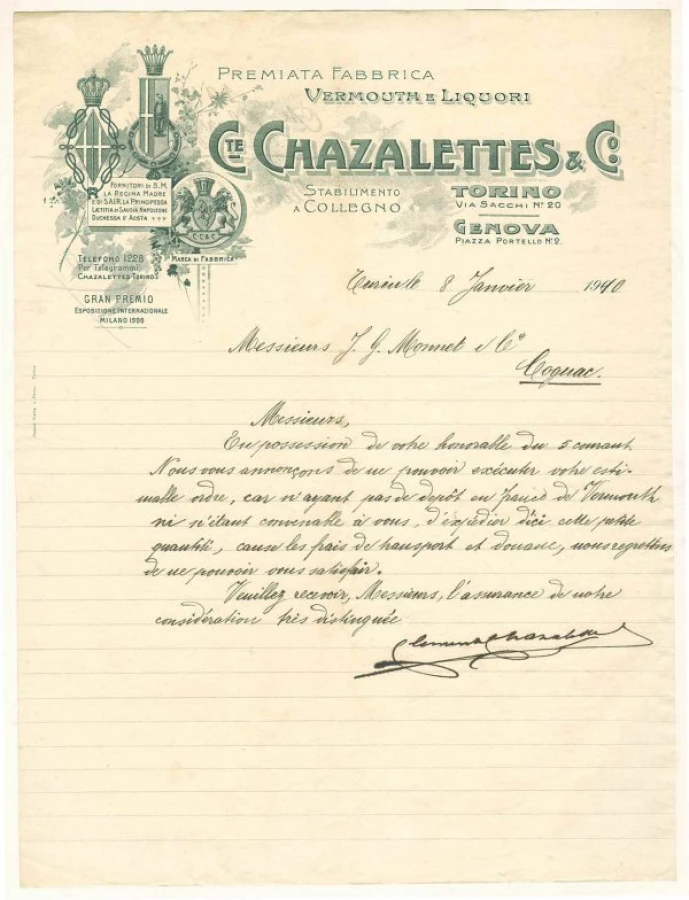 PREMIATA FABBRICA
VERMOUTH E LIQUORI
CTE CHAZALETTES & Co.
STABILIMENTO
A COLLEGNO
TORINO
VIA SACCHI No. 20
GENOVA
PIAZZA PORTELLO No. 2.
FORNITORI DI S.M.
LA REGINA MADRE
E DI S.A.I.R. LA PRINCIPESSA
LÆTITIA DI SAVOIA NAPOLEONE
DUCHESSA D'AOSTA
C C & C
MARCA DI FABBRICA
TELEFONO 1228
Per Telegrammi:
CHAZALETTES TORINO
GRAN PREMIO
ESPOSIZIONE INTERNAZIONALE
MILANO 1906
Turin le 8 Janvier 1910
Messieurs J. G. Monnet & Co
Cognac.
Messieurs,
En possession de votre honorable du 5 courant.
Nous vous annonçons de ne pouvoir exécuter votre esti-
mable ordre, car n'ayant pas de depôt en France de Vermouth
ni n'étant convenable à vous, d'expédier d'ici cette petite
quantité, cause les frais de transport et douane, nous regrettons
de ne pouvoir vous satisfair.
Veuillez recevoir, Messieurs, l'assurance de notre
considération très distinguée